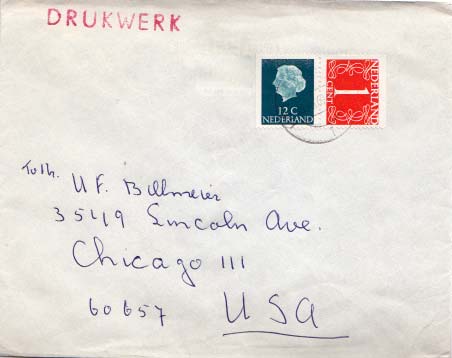 DRUKWERK
12 C
NEDERLAND
NEDERLAND
1
CENT
To Mr. U F. Billmeier
3549 Lincoln Ave.
Chicago Ill
60657 USA